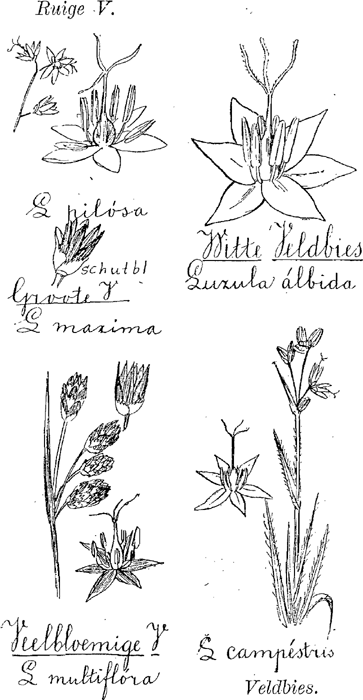 Ruige V.
L pilósa
schutbl
Groote V
L maxima
Witte Veldbies
Luzula álbida
Veelbloemige V
L multiflóra
L campéstris
Veldbies.